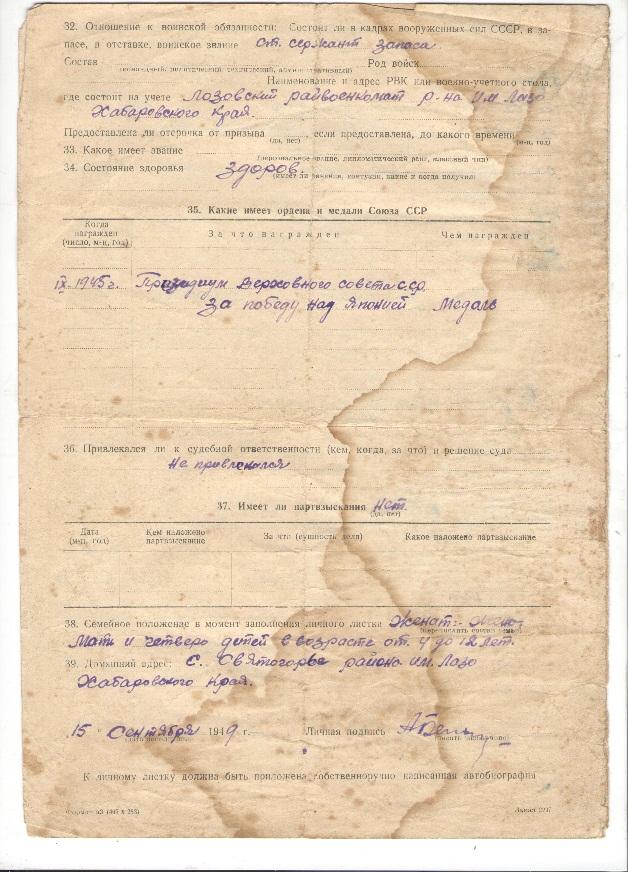 32. Отношение к воинской обязанности: Состоит ли в кадрах вооруженных сил СССР, в за-
пасе, в отставке, воинское звание ст. сержант запаса
Состав Род войск
(командный, политический, технический, административный)
Наименование и адрес РВК или военно-учетного стола,
где состоит на учете Лозовский райвоенкомат р-на им Лазо
Хабаровского Края.
Предоставлена ли отсрочка от призыва , если предоставлена, до какого времени
(да, нет) (м-ц, год)
33. Какое имеет звание
(персональное звание, дипломатический ранг, классный чин)
34. Состояние здоровья Здоров.
(имеет ли ранения, контузии, какие и когда получил)
35. Какие имеет ордена и медали Союза ССР
Когда награжден (число, м-ц, год) За что награжден Чем награжден
IX-1945 г. Президиум Верховного совета ССР.
За победу над Японией Медаль
36. Привлекался ли к судебной ответственности (кем, когда, за что) и решение суда
Не привлекался
37. Имеет ли партвзыскания Нет.
(да, нет)
Дата (м-ц, год) Кем наложено партвзыскание За что (сущность дела) Какое наложено партвзыскание
38. Семейное положение в момент заполнения личного листка Женат:- Жена
Мать и четверо детей в возрасте от 4 до 12 лет.
39. Домашний адрес: С. Святогорье района им. Лазо
Хабаровского Края.
15 Сентября 1949 г. Личная подпись
К личному листку должна быть приложена собственноручно написанная автобиография
Формат а3 (407 х 288) Заказ